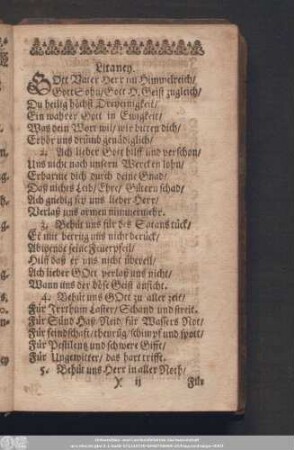 Litaney.
GOtt Vater Herr im Himmelreich/
Gott Sohn/Gott H. Geist zugleich/
Du heilig höchst Dreyeinigkeit/
Ein wahrer Gott in Ewigkeit/
Was dein Wort wil/ wie bitten dich/
Erhör uns drümb genädiglich/
2. Ach lieber Gott hilff und verschon/
Uns nicht nach unsern Wercken lohn/
Erbarme dich durch deine Gnad/
Daß nichts Leib/Ehre/ Gütern schad/
Ach gnedig sey uns lieber Herr/
Verlaß uns armen nimmermehr.
3. Behüt uns für des Satans tück/
Er mit betrug uns nicht berück/
Abwende seine Feuerpfeil/
Hilff daß er uns nicht übereil/
Ach lieber GOtt verlaß uns nicht/
Wann uns der böse Geist anficht.
4. Behüt uns GOtt zu aller zeit/
Für Irrthum Laster/ Schand und streit.
Für Sünd Haß/Neid/ für Wassers Not/
Für feindschafft/ schimpf und spott/
Für Pestilentz und schwere Gifft/
Für Ungewitter/ das hart trifft.
5. Behüt uns Herr in aller Noth/
X ij Für